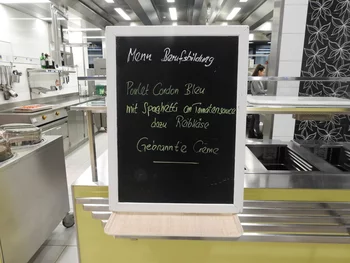 Menu Berufsbildung
Poulet Cordon Bleu
mit Spaghetti an Tomatensauce
dazu Reibkäse
Gebrannte Crème